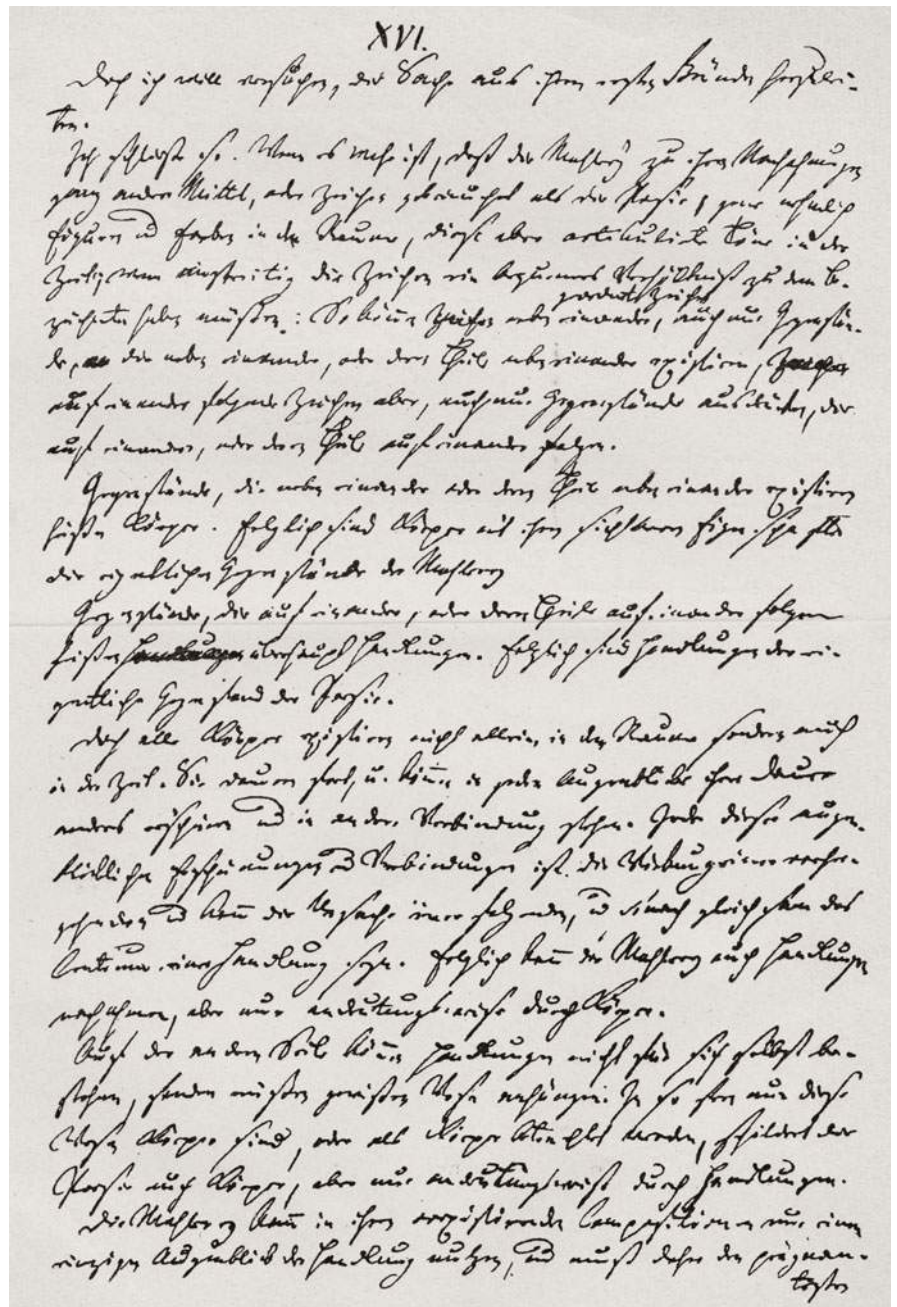 XVI.
Doch ich will versuchen, die Sache aus ihren ersten Gründen herzulei-
ten.
Ich schließe so. Wenn es wahr ist, daß die Mahlerey zu ihren Nachahmungen
ganz andere Mittel, oder Zeichen gebrauchet als die Poesie, jene nehmlich
Figuren und Farben in dem Raume, diese aber artikulirte Töne in der
Zeit; wenn unstreitig die Zeichen ein bequemes Verhältniß zu dem be-
geordnete Zeichen
zeichneten haben müssen: So können neben einander, auch nur Gegenstän-
de, die neben einander, oder deren Theile neben einander existiren,
auf einander folgende Zeichen aber, auch nur Gegenstände ausdrücken, die
auf einander, oder deren Theile auf einander folgen.
Gegenstände, die neben einander oder deren Theile neben einander existiren
heißen Körper. Folglich sind Körper mit ihren sichtbaren Eigenschaften
die eigentlichen Gegenstände der Mahlerey
Gegenstände, die auf einander, oder deren Theile auf einander folgen
heißen überhaupt Handlungen. Folglich sind Handlungen der ei-
gentliche Gegenstand der Poesie.
Doch alle Körper existiren nicht allein in dem Raume sondern auch
in der Zeit. Sie dauern fort, u. können in jedem Augenblicke ihrer Dauer
anders erscheinen und in andrer Verbindung stehen. Jede dieser augen-
blicklichen Erscheinungen und Verbindungen ist die Wirkung einer vorher-
gehenden und kann die Ursache einer folgenden, und sonach gleichsam das
Centrum einer Handlung seyn. Folglich kann die Mahlerey auch Handlungen
nachahmen, aber nur andeutungsweise durch Körper.
Auf der andern Seite können Handlungen nicht für sich selbst be-
stehen, sondern müssen gewissen Wesen anhängen. In so fern nun diese
Wesen Körper sind, oder als Körper betrachtet werden, schildert die
Poesie auch Körper, aber nur andeutungsweise durch Handlungen.
Die Mahlerey kann in ihren coexistirenden Compositionen nur einen
einzigen Augenblick der Handlung nutzen, und muß daher den prägnan-
testen